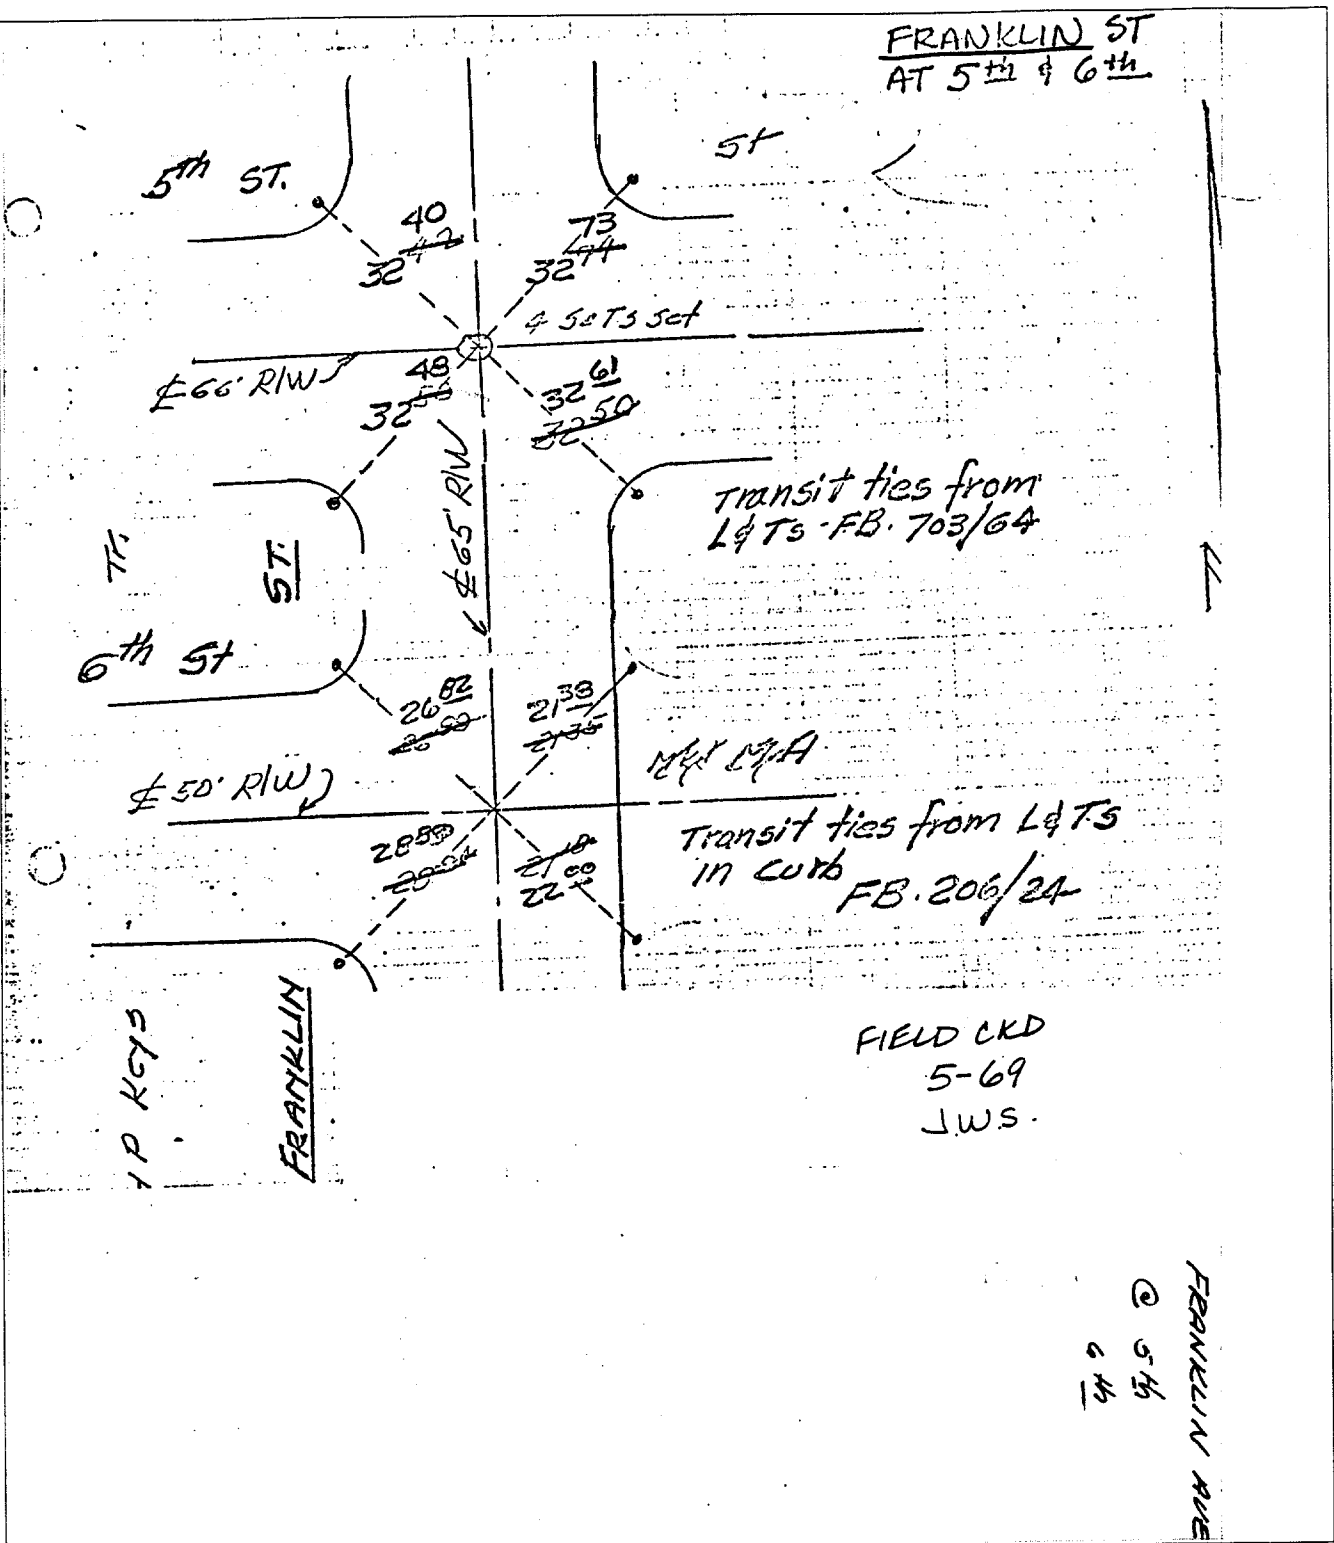 FRANKLIN ST
AT 5th & 6th
5th ST.
St
32 40
42
32 73
74
4 SETS Set
₵ 66' R/W
32 48
32 61
32 50
₵ 65' R/W
Transit ties from
L&Ts - FB. 703/64
Tr.
ST.
6th St
26 82
21 38
21 35
₵ 50' R/W
28
21 18
22 00
Transit ties from L&Ts
in curb
FB. 206/24
P Keys
FRANKLIN
FIELD CKD
5-69
J.W.S.
FRANKLIN AVE
@ 5th
6th